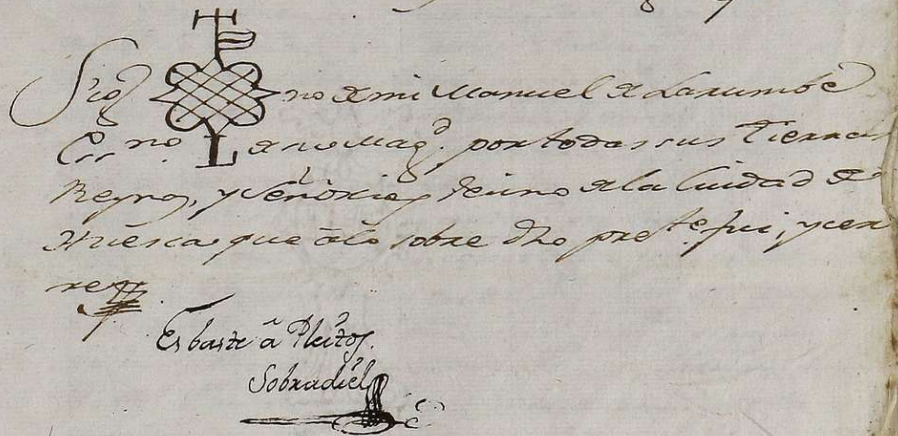 Sig no de mi Manuel de Larumbe
Essno de su Magd. por todas sus Tierras
Reynos, y Señorios vezino de la Ciudad de
Huesca que a lo sobre dho preste. fui, y cer
re
Es baste a Pleitos.
Sobradiel